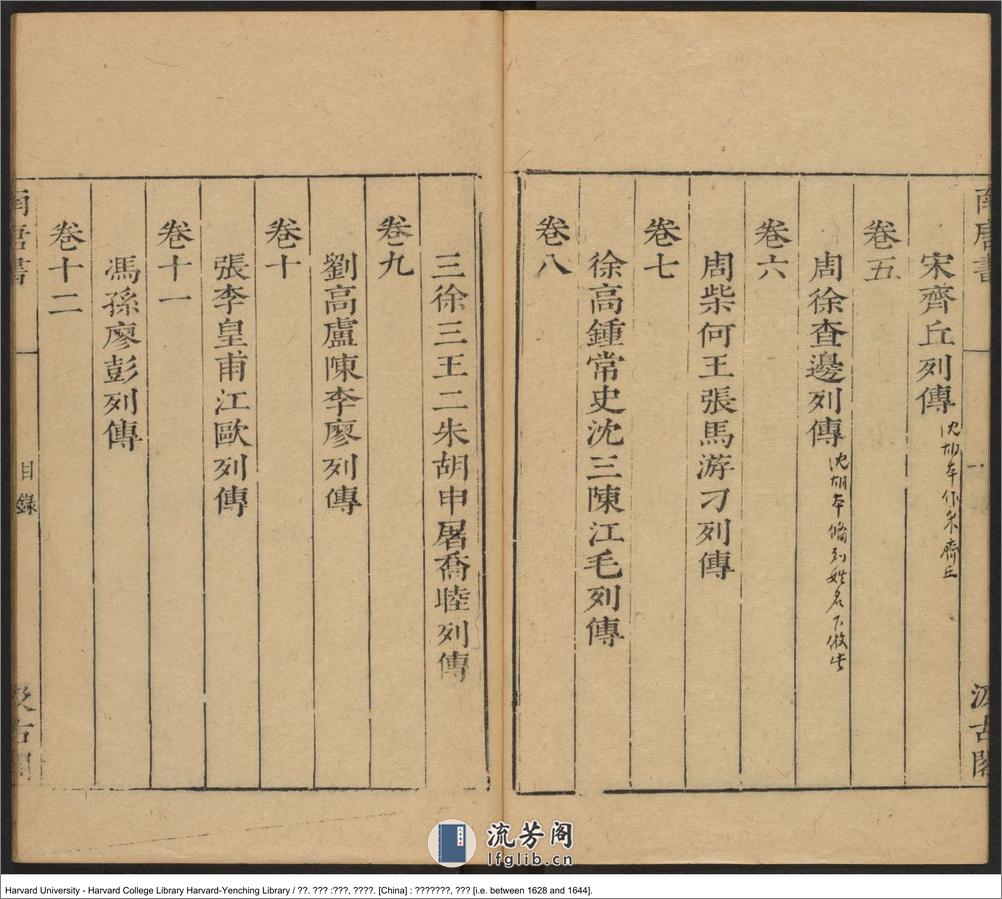 南唐書
宋齊丘列傳
沈胡本作朱齊丘
卷五
周徐查邊列傳
沈胡本備列姓名下倣此
卷六
周柴何王張馬游刁列傳
卷七
徐高鍾常史沈三陳江毛列傳
卷八
汲古閣
三徐三王二朱胡申屠喬睦列傳
卷九
劉高盧陳李廖列傳
卷十
張李皇甫江歐列傳
卷十一
馮孫廖彭列傳
卷十二
南唐書
目錄
汲古閣
流芳阁
lfglib.cn
Harvard University - Harvard College Library Harvard-Yenching Library / ??. ??? :???, ????. [China] : ???????, ??? [i.e. between 1628 and 1644].